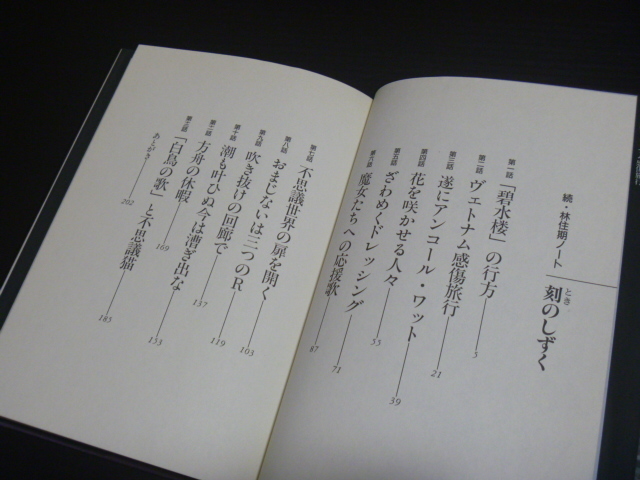 続・林住期ノート
刻のしずく
とき
第一話 「碧水楼」の行方 5
第二話 ヴェトナム感傷旅行 21
第三話 遂にアンコール・ワット 39
第四話 花を咲かせる人々 55
第五話 ざわめくドレッシング 71
第六話 魔女たちへの応援歌 87
第七話 不思議世界の扉を開く 103
第八話 おまじないは三つのR 119
第九話 吹き抜けの回廊で 137
第十話 潮も叶ひぬ今は漕ぎ出な 153
第十一話 方舟の休暇 169
第十二話 「白鳥の歌」と不思議猫 185
あとがき 202